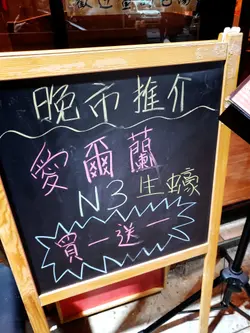 晚市推介
愛爾蘭
N3生蠔
買一送一